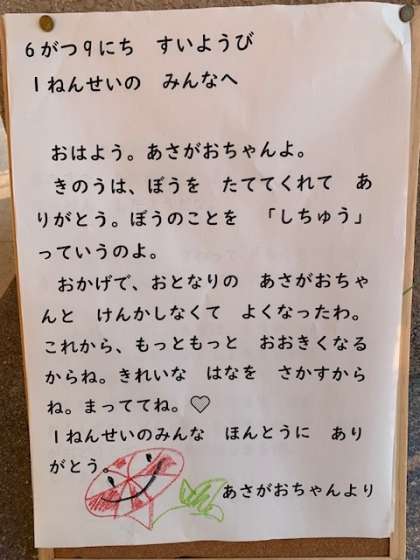 6がつ9にち　すいようび
1ねんせいの　みんなへ
おはよう。あさがおちゃんよ。
きのうは、ぼうを　たててくれて　あ
りがとう。ぼうのことを　「しちゅう」
っていうのよ。
おかげで、おとなりの　あさがおちゃ
んと　けんかしなくて　よくなったわ。
これから、もっともっと　おおきくなる
からね。きれいな　はなを　さかすから
ね。まっててね。♡
1ねんせいのみんな　ほんとうに　あり
がとう。
あさがおちゃんより